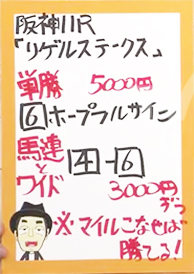 阪神11R
「リゲルステークス」
単勝 5000円
6 ホープフルサイン
馬連とワイド 4-6
3000円ずつ
※マイルこなせば
勝てる!